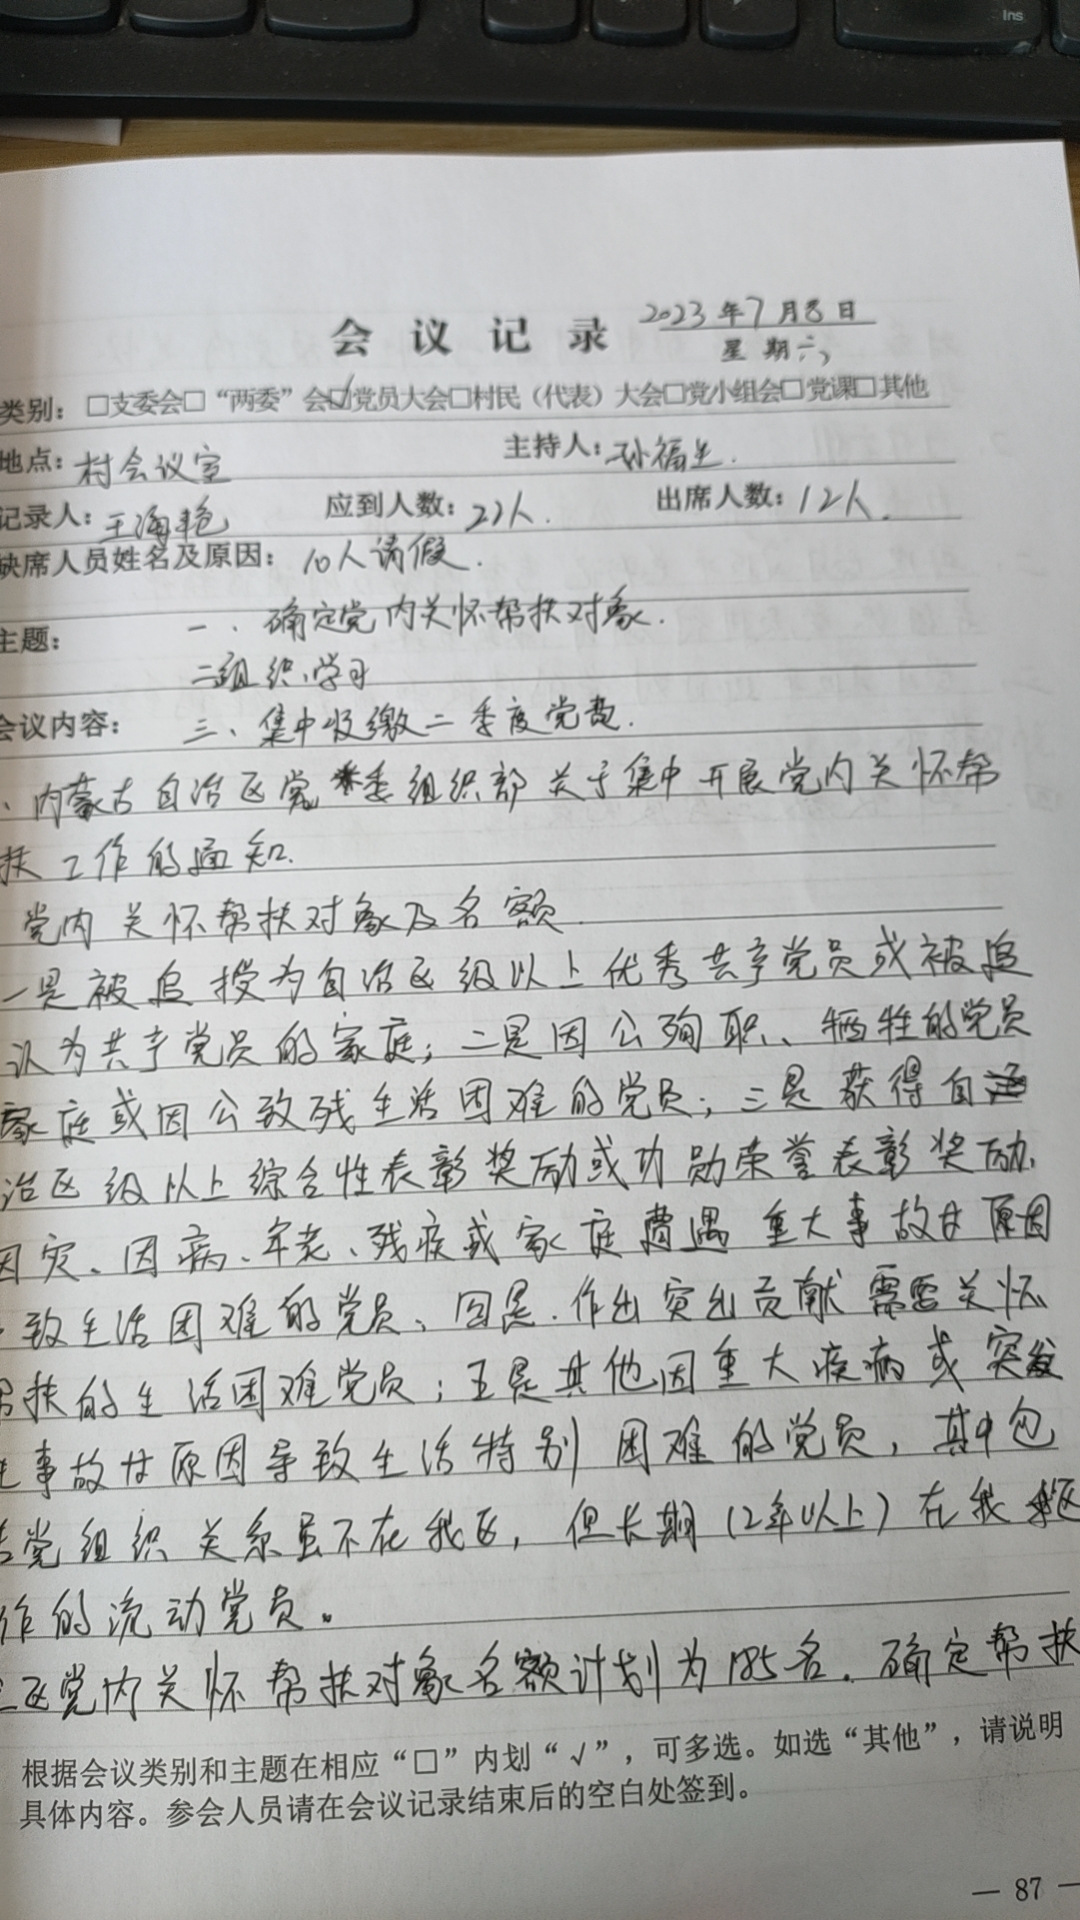 Ins
会议记录 2023年7月8日
星期六
类别：□支委会□“两委”会☑党员大会□村民（代表）大会□党小组会□党课□其他
地点：村会议室 主持人：孙福生.
记录人：王海艳 应到人数：22人. 出席人数：12人.
缺席人员姓名及原因：10人请假.
主题： 一、确定党内关怀帮扶对象.
二组织学习
会议内容： 三、集中收缴二季度党费.
、内蒙古自治区党委组织部关于集中开展党内关怀帮
扶工作的通知.
党内关怀帮扶对象及名额.
一是被追授为自治区级以上优秀共产党员或被追
认为共产党员的家庭；二是因公殉职、牺牲的党员
家庭或因公致残生活困难的党员；三是获得自
治区级以上综合性表彰奖励或功勋荣誉表彰奖励、
因灾、因病、年老、残疾或家庭遭遇重大事故等原因
致生活困难的党员、四是.作出突出贡献需要关怀
帮扶的生活困难党员；五是其他因重大疾病或突发
性事故等原因导致生活特别困难的党员，其中包
括党组织关系虽不在我区，但长期（2年以上）在我区
作的流动党员。
区党内关怀帮扶对象名额计划为185名.确定帮扶
根据会议类别和主题在相应“□”内划“√”，可多选。如选“其他”，请说明
具体内容。参会人员请在会议记录结束后的空白处签到。
— 87 —